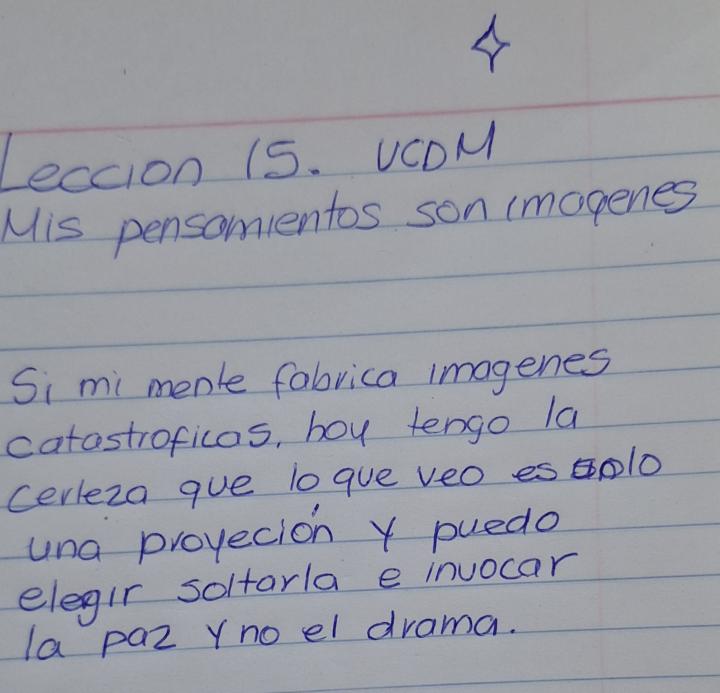 Leccion 15. UCDM
Mis pensamientos son imagenes
Si mi mente fabrica imagenes
catastroficas, hoy tengo la
certeza que lo que veo es solo
una proyeción y puedo
elegir soltarla e invocar
la paz y no el drama.